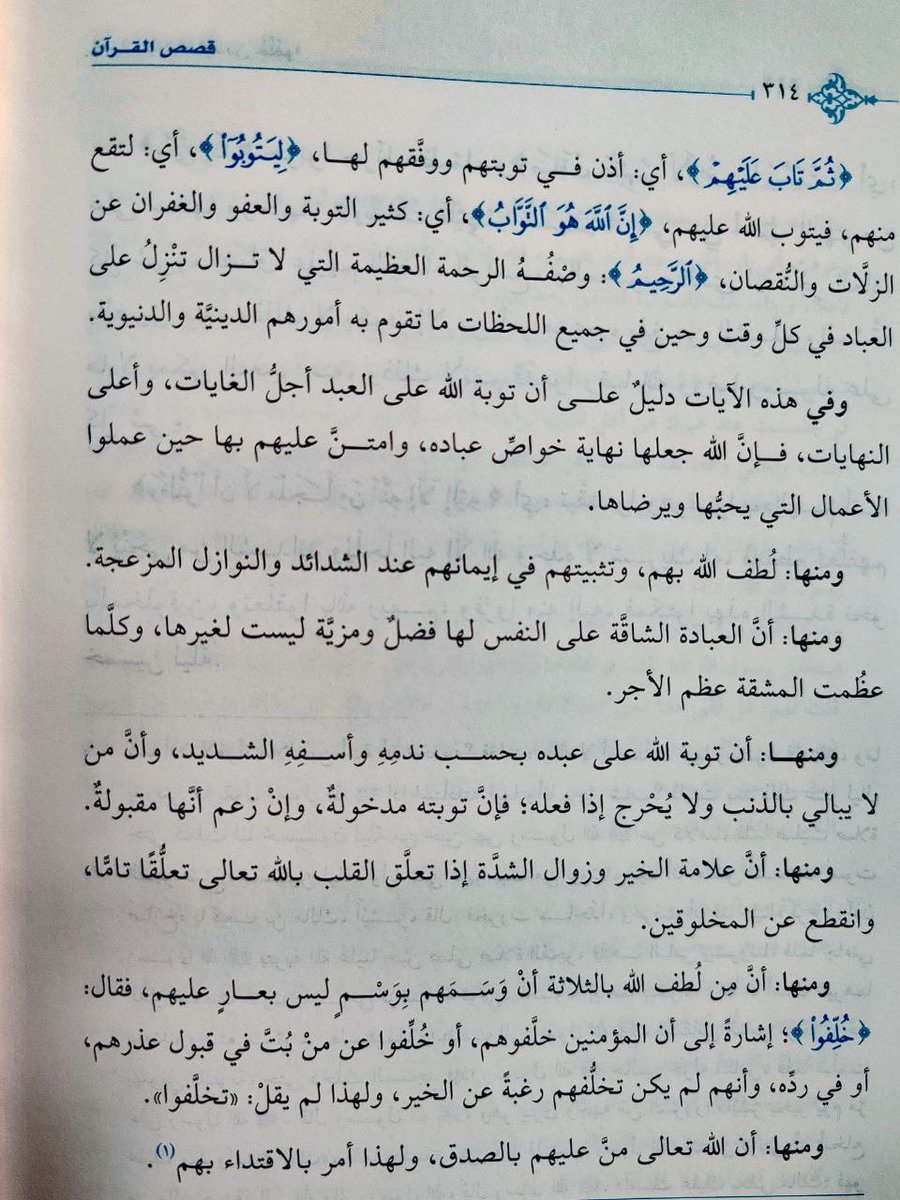 قصص القـرآن
٣١٤
﴿ثُمَّ تَابَ عَلَيْهِمْ﴾، أي: أذن فـي توبتهم ووفَّقهم لهـا، ﴿لِيَتُوبُوٓا۟﴾، أي: لتقع
منهم، فيتوب الله عليهم، ﴿إِنَّ ٱللَّهَ هُوَ ٱلتَّوَّابُ﴾، أي: كثير التوبة والعفو والغفران عن
الزلَّات والنُّقصان، ﴿ٱلرَّحِيمُ﴾: وصْفُـهُ الرحمة العظيمة التي لا تـزال تنْزِلُ على
العباد في كلِّ وقت وحين في جميع اللحظات ما تقوم به أمورهم الدينيَّة والدنيوية.
وفي هذه الآيات دليلٌ علـى أن توبة الله على العبد أجلُّ الغايات، وأعلى
النهايات، فـإنَّ الله جعلها نهاية خواصِّ عباده، وامتـنَّ عليهم بها حين عملوا
الأعمال التي يحبُّها ويرضاها.
ومنها: لُطف الله بهم، وتثبيتهم في إيمانهم عند الشدائد والنوازل المزعجة.
ومنها: أنَّ العبادة الشاقَّة على النفس لها فضلٌ ومزيَّة ليست لغيرها، وكلَّما
عظُمت المشقة عظم الأجر.
ومنهـا: أن توبة الله على عبده بحسـب ندمهِ وأسـفِهِ الشـديد، وأنَّ من
لا يبالي بالذنب ولا يُحْرج إذا فعله؛ فإنَّ توبته مدخولةٌ، وإنْ زعم أنَّها مقبولةٌ.
ومنها: أنَّ علامة الخير وزوال الشدَّة إذا تعلَّق القلب بالله تعالى تعلُّقًا تامًّا،
وانقطع عن المخلوقين.
ومنها: أنَّ مِن لُطف الله بالثلاثة أنْ وَسَـمَهم بِوَسْـمٍ ليس بعـارٍ عليهم، فقال:
﴿خُلِّفُوا۟﴾؛ إشارةً إلى أن المؤمنين خلَّفوهم، أو خُلِّفوا عن منْ بُتَّ في قبول عذرهم،
أو في ردِّه، وأنهم لم يكن تخلُّفهم رغبةً عن الخير، ولهذا لم يقلْ: «تخلَّفوا».
ومنها: أن الله تعالى منَّ عليهم بالصدق، ولهذا أمر بالاقتداء بهم(١).